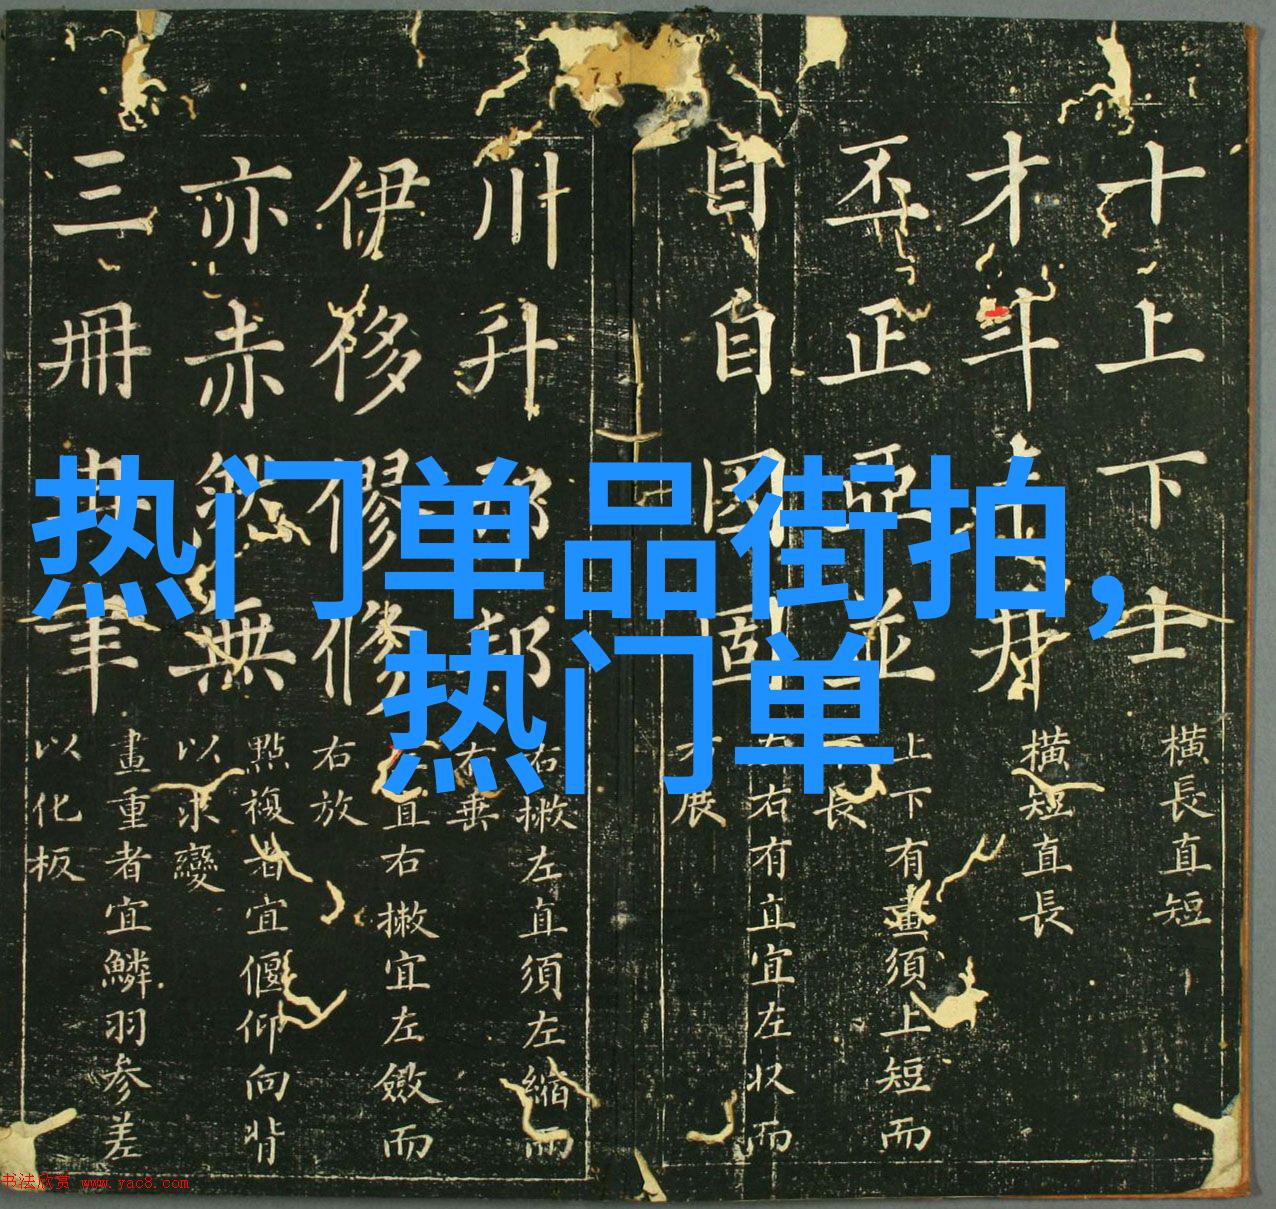 热门单品街拍,
热门单
十上下士
橫長直短
才斗
橫短直長
丕正亞並
上下有畫須上短而
長
自自固
左右有直宜左收而
右展
川升邦
右撇左直須左縮而
右垂
伊侈修
直右撇宜左斂而
右放
亦赤然無
點複者宜偃仰向背
以求變
三冊聿
畫重者宜鱗羽參差
以化板
书法欣赏 www.yac8.com